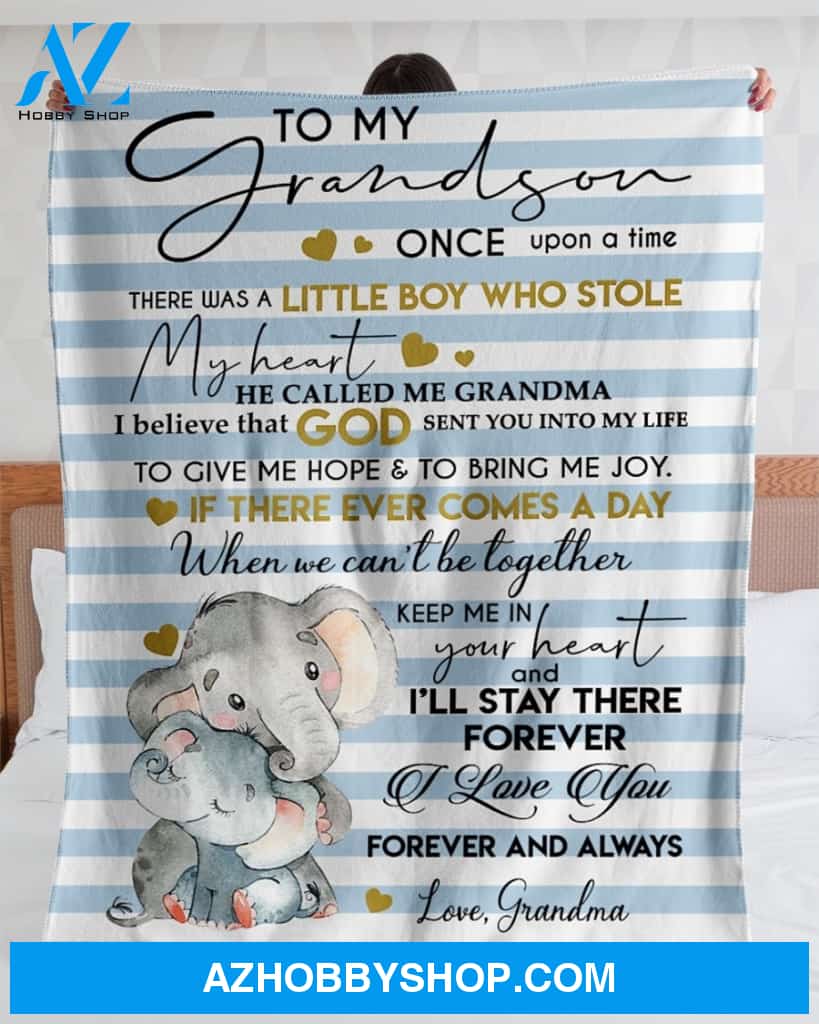 AZ
HOBBY SHOP
TO MY
Grandson
ONCE upon a time
THERE WAS A LITTLE BOY WHO STOLE
My heart
HE CALLED ME GRANDMA
I believe that GOD SENT YOU INTO MY LIFE
TO GIVE ME HOPE & TO BRING ME JOY.
IF THERE EVER COMES A DAY
When we can't be together
KEEP ME IN
your heart
and
I'LL STAY THERE
FOREVER
I Love You
FOREVER AND ALWAYS
Love, Grandma
AZHOBBYSHOP.COM